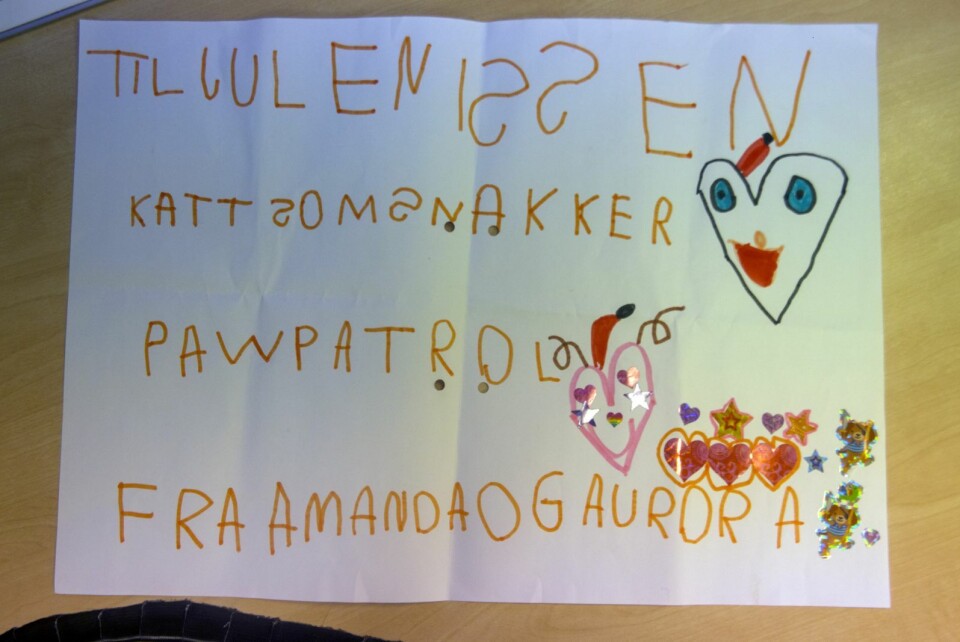 TIL JULENISSEN
KATT SOM SNAKKER
PAWPATROL
FRA AMANDA OG AURORA